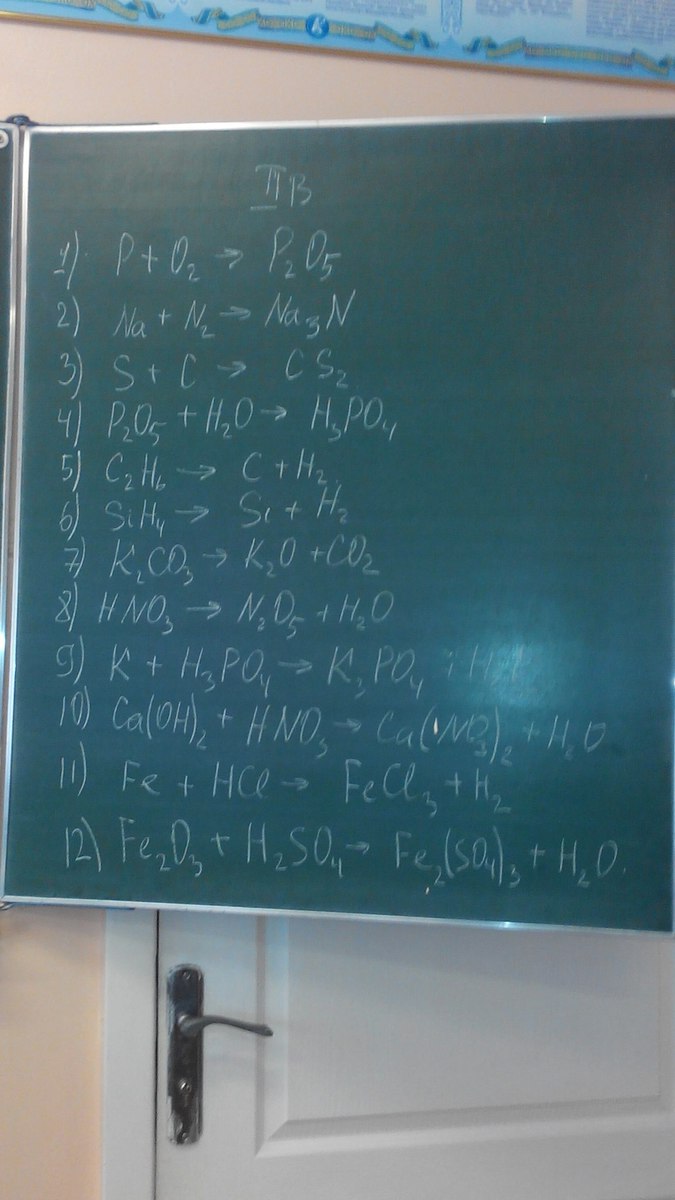 II В
1) P + O₂ → P₂O₅
2) Na + N₂ → Na₃N
3) S + C → CS₂
4) P₂O₅ + H₂O → H₃PO₄
5) C₂H₆ → C + H₂
6) SiH₄ → Si + H₂
7) K₂CO₃ → K₂O + CO₂
8) HNO₃ → N₂O₅ + H₂O
9) K + H₃PO₄ → K₃PO₄ + H₂↑
10) Ca(OH)₂ + HNO₃ → Ca(NO₃)₂ + H₂O
11) Fe + HCl → FeCl₃ + H₂
12) Fe₂O₃ + H₂SO₄ → Fe₂(SO₄)₃ + H₂O.